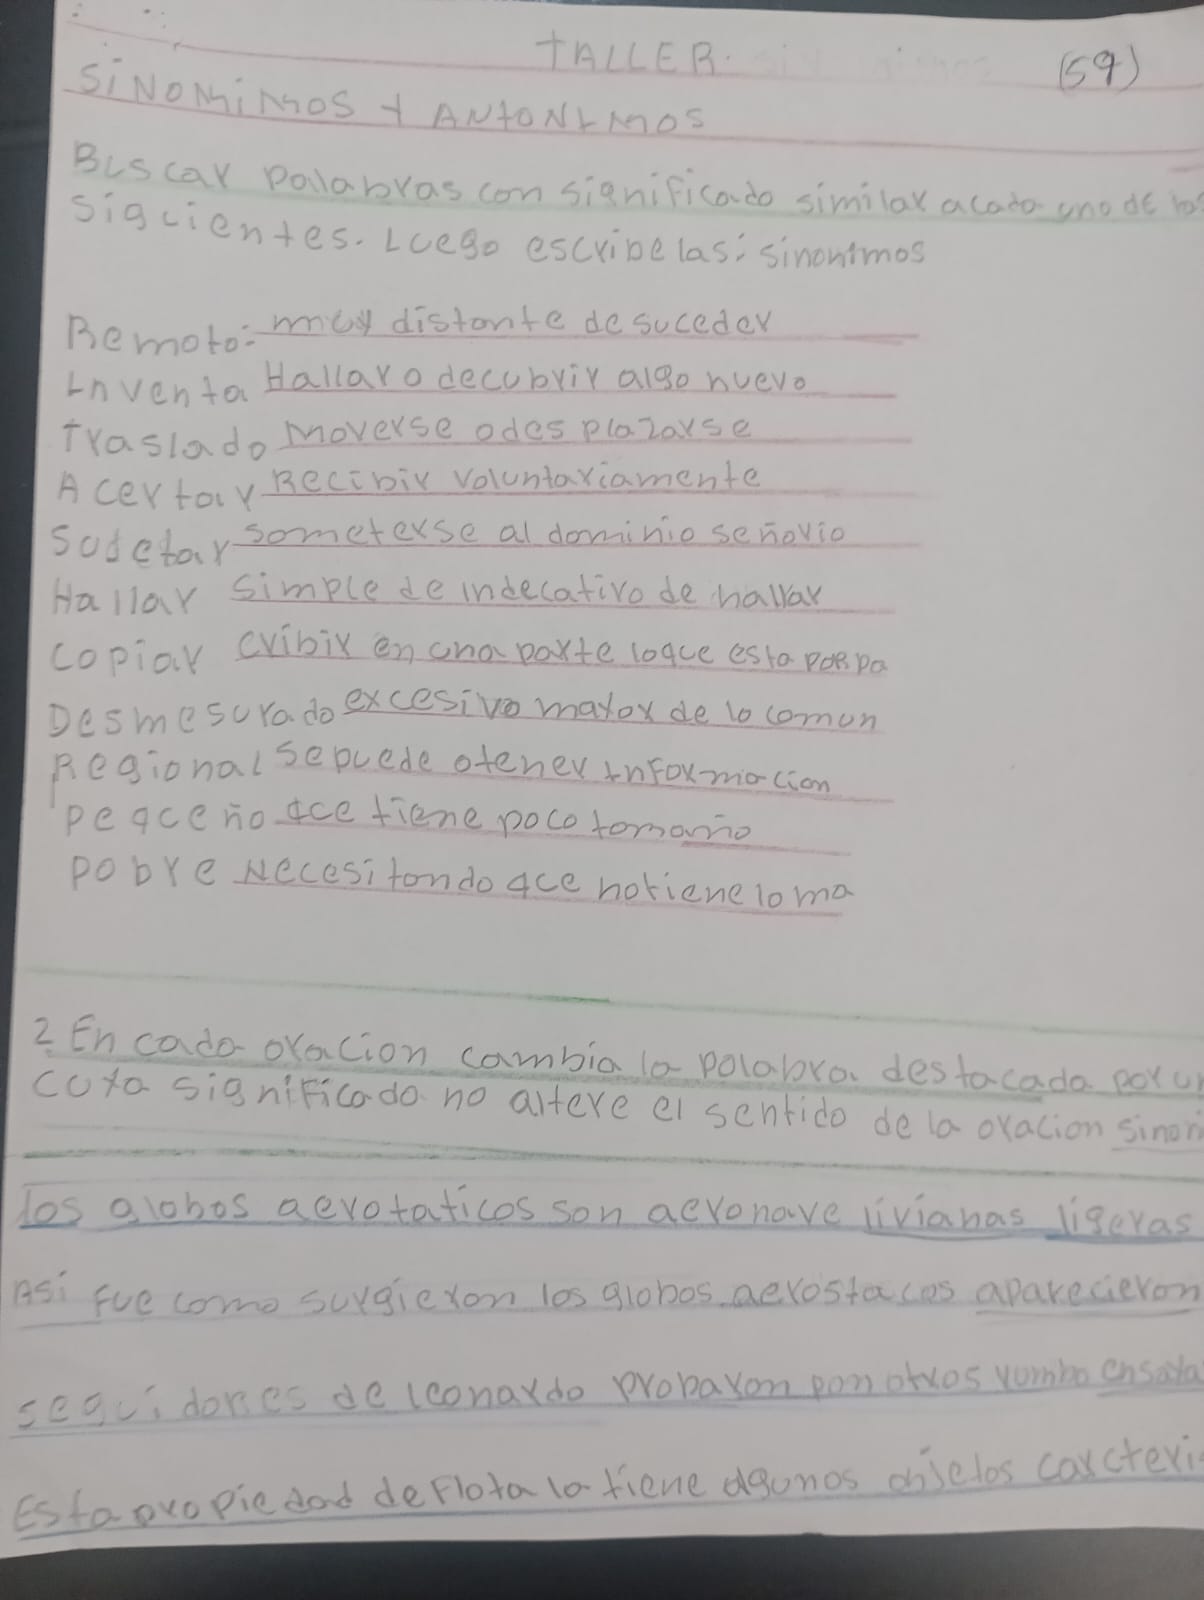 TALLER.
(59)
SiNOMiMOS Y ANTONIMOS
Buscar palabras con significado similar a cada uno de las
sigcientes. Luego escribelas: sinonimos
Remoto: muy distante de suceder
Inventa Hallar o decubrir algo nuevo
Traslado Moverse o desplazarse
Acertar Recibir voluntariamente
Sudetar someterse al dominio señorio
Hallar simple de indecativo de hallar
copiar cribir en una parte loque esta por pa
Desmesurado excesivo mayor de lo comun
Regional se puede otener informacion
peqceño qce tiene poco tamaño
pobre Necesitando qce notiene lo ma
2. En cada oracion cambia la palabra destacada por un
cuya significado no altere el sentido de la oracion sinon
los globos aerotaticos son aeronave livianas ligeras
Asi fue como surgieron los globos aerostacos aparecieron
seguidores de leonardo probaron pon otros rumbo ensaya
Esta propiedad de flota la tiene algunos objetos carcteri